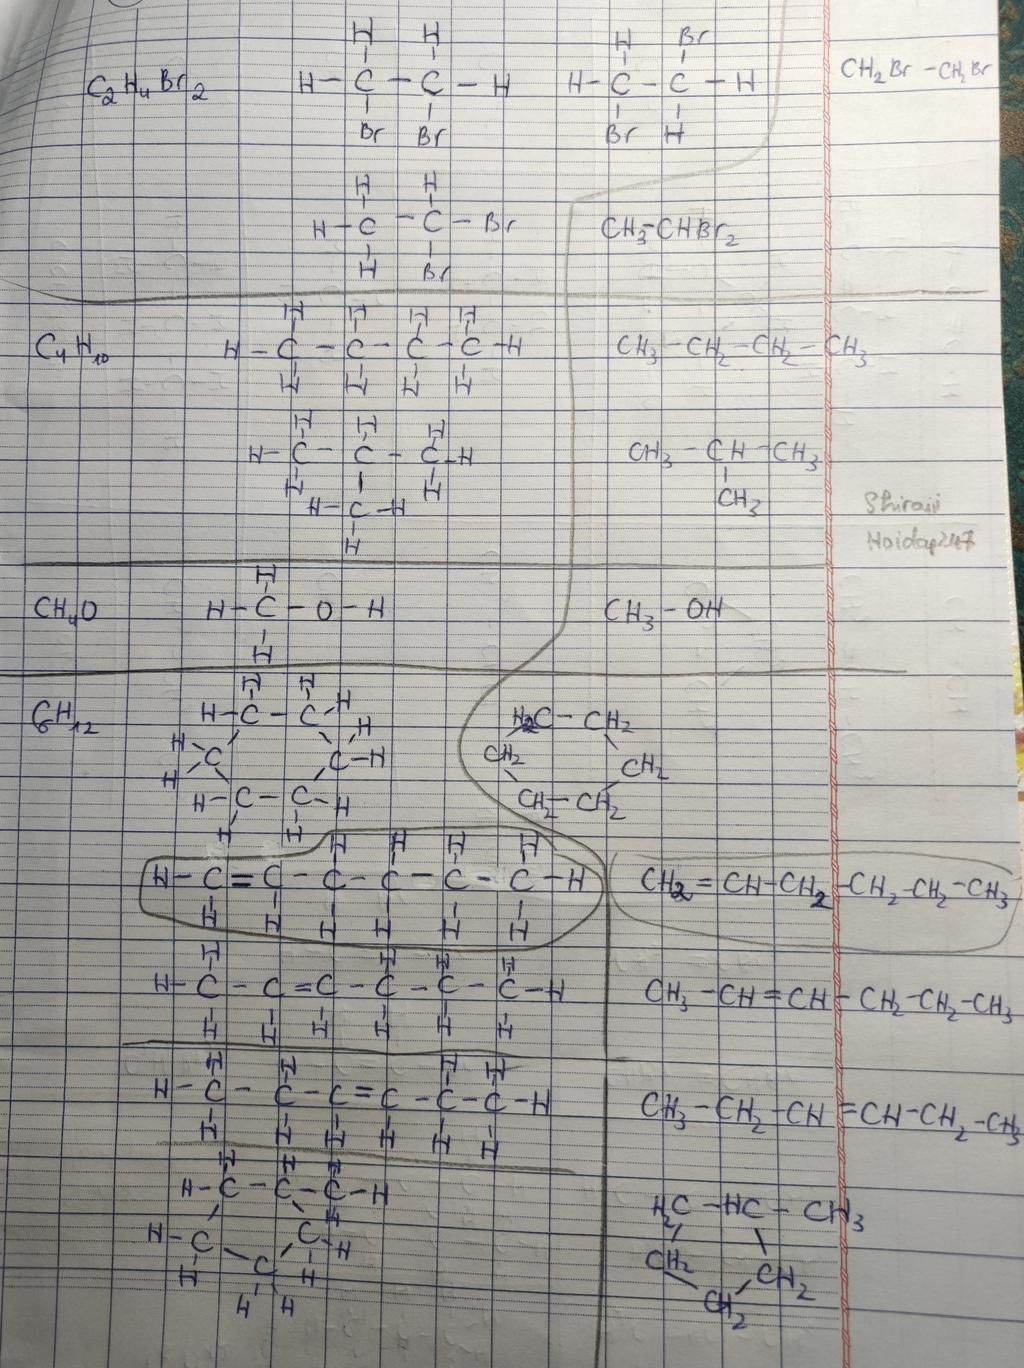 C2H4Br2
H H
H - C - C - H
Br Br
H Br
H - C - C - H
Br H
CH2Br - CH2Br
H H
H - C - C - Br
H Br
CH3-CHBr2
C4H10
H H H H
H - C - C - C - C - H
H H H H
CH3 - CH2 - CH2 - CH3
H H H
H - C - C - C - H
H H
H - C - H
H
CH3 - CH - CH3
CH3
Shiraii
Haidop247
CH4O
H
H - C - O - H
H
CH3 - OH
C6H12
H H
H - C - C - H
H H
H C C - H
H - C - C - H
H H
H2C - CH2
CH2 CH2
CH2 - CH2
H H H H
H - C = C - C - C - C - C - H
H H H H H H
CH2 = CH - CH2 - CH2 - CH2 - CH3
H H H H
H - C - C = C - C - C - C - H
H H H H H H
CH3 - CH = CH - CH2 - CH2 - CH3
H H H H
H - C - C - C = C - C - C - H
H H H H H H
CH3 - CH2 - CH = CH - CH2 - CH3
H H H
H - C - C - C - H
H
H - C C - H
H C H
H H
H2C - HC - CH3
CH2 CH2
CH2